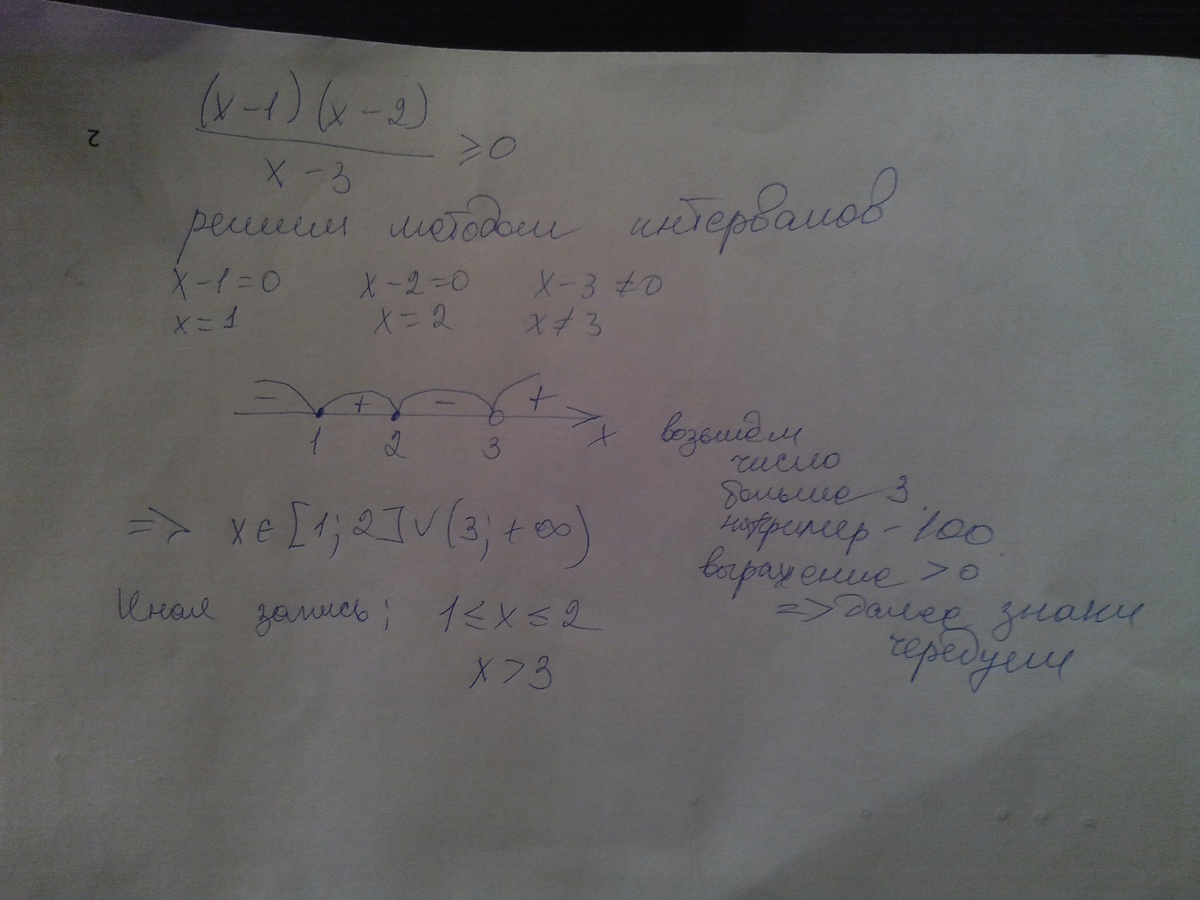 (x-1)(x-2)
x-3
≥0
решим методом интервалов
x-1=0 x-2=0 x-3≠0
x=1 x=2 x≠3
- + - +
1 2 3 x
возьмем
число
больше 3
например - 100
выражение > 0
=> далее знаки
чередуем
=> x∈[1;2]∨(3;+∞)
Иная запись: 1≤x≤2
x>3
2